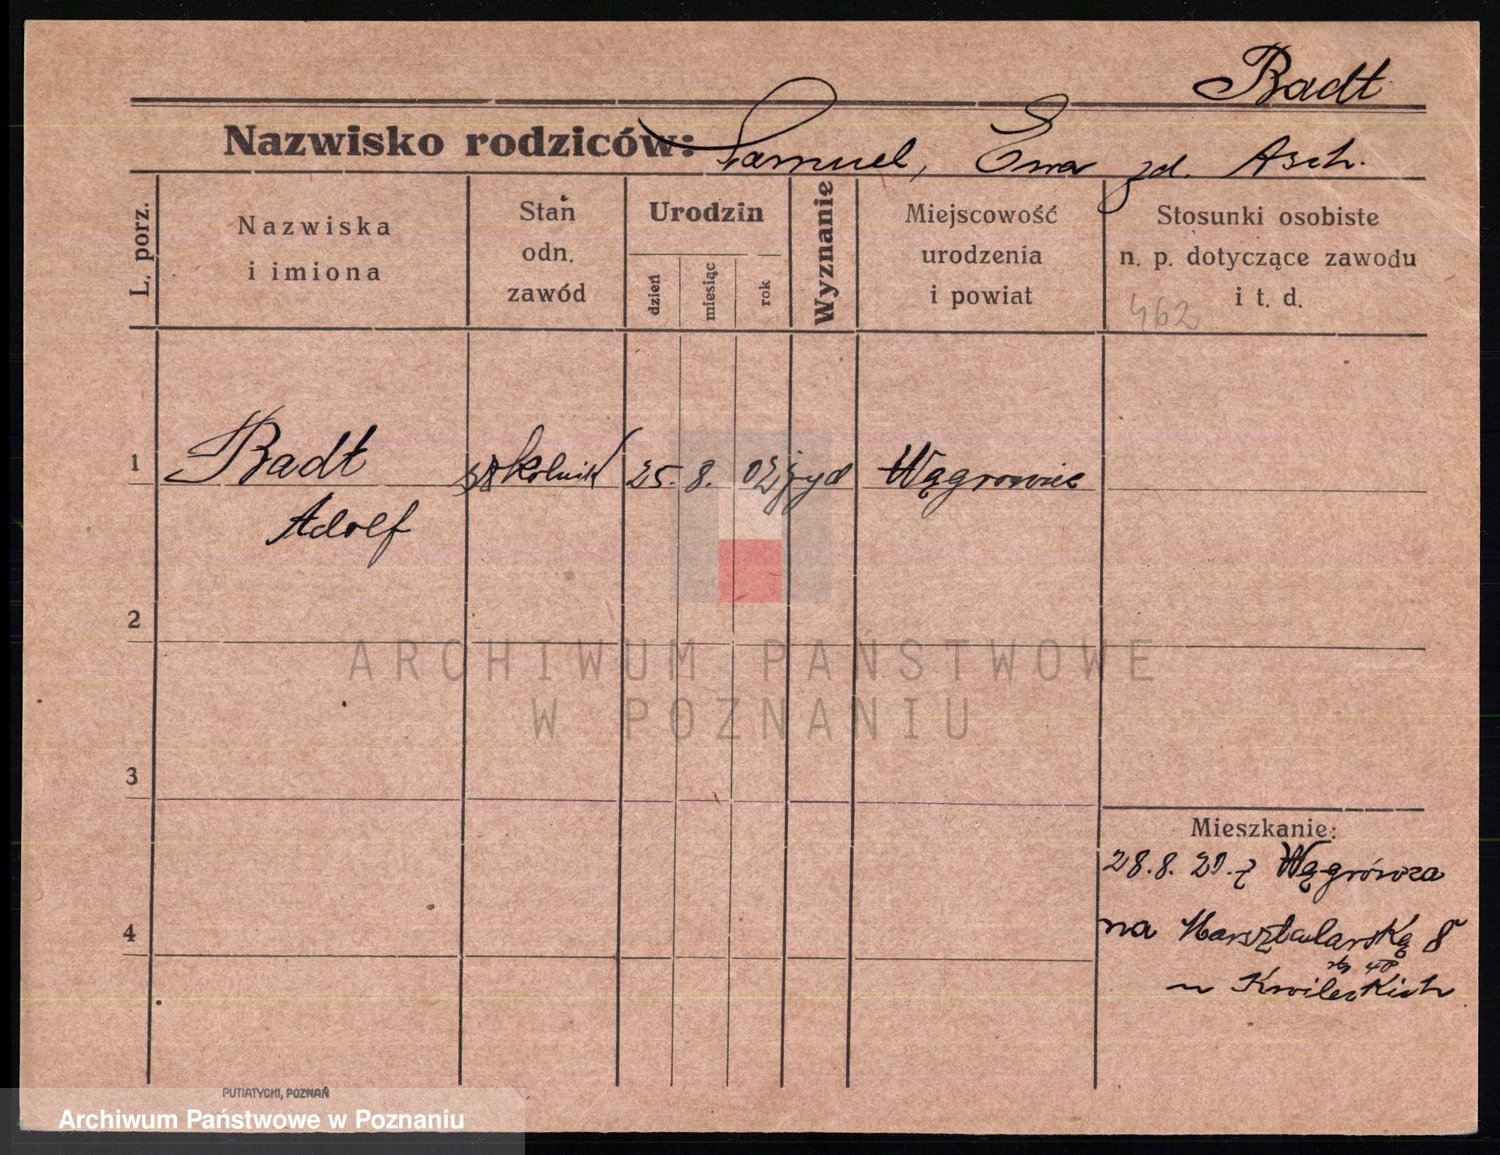 Badt
Nazwisko rodziców: Samuel, Ewa zd. Asch.
L. porz.
Nazwiska
i imiona
Stan
odn.
zawód
Urodzin
dzień
miesiąc
rok
Wyznanie
Miejscowość
urodzenia
i powiat
Stosunki osobiste
n. p. dotyczące zawodu
i t. d.
462
1 Badt szkolnik 25. 8. 02 żyd Wągrowiec
Adolf
2
ARCHIWUM PAŃSTWOWE
W POZNANIU
3
Mieszkanie:
28.8. 21. z Wągrówca
4
na Masztalarską 8
u Kwileckich
PUTIATYCKI, POZNAŃ
Archiwum Państwowe w Poznaniu